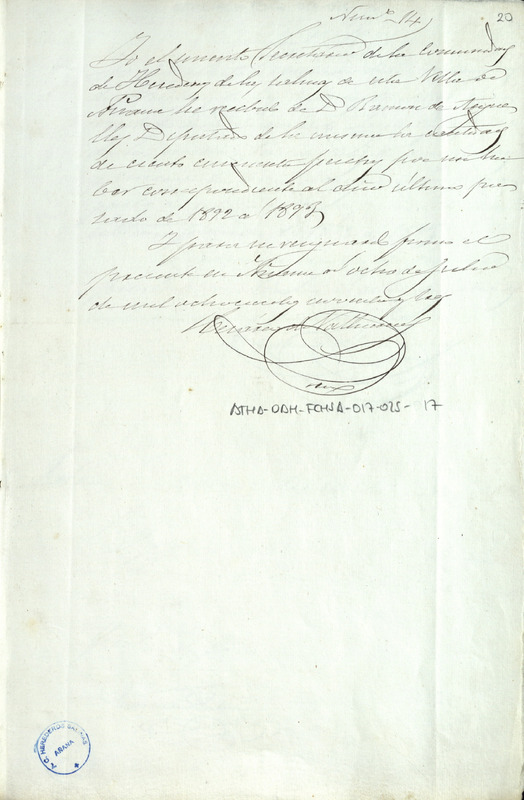 Num.º 14
20
Yo el infrascrito Secretario de la Comunidad
de Herederos de las salinas de esta Villa de
Añana he recibido de D. Ramon de Argue
lles Diputado de la misma la cantidad
de ciento cincuenta pesetas por mi ha
ber correspondiente al año último pa
sado de 1892 a 1893,
Y para su resguardo firmo el
presente en Añana a ocho de Julio
de mil ochocientos noventa y tres
ATHA-DAH-FCHSA-017-025-17
ARAÑA